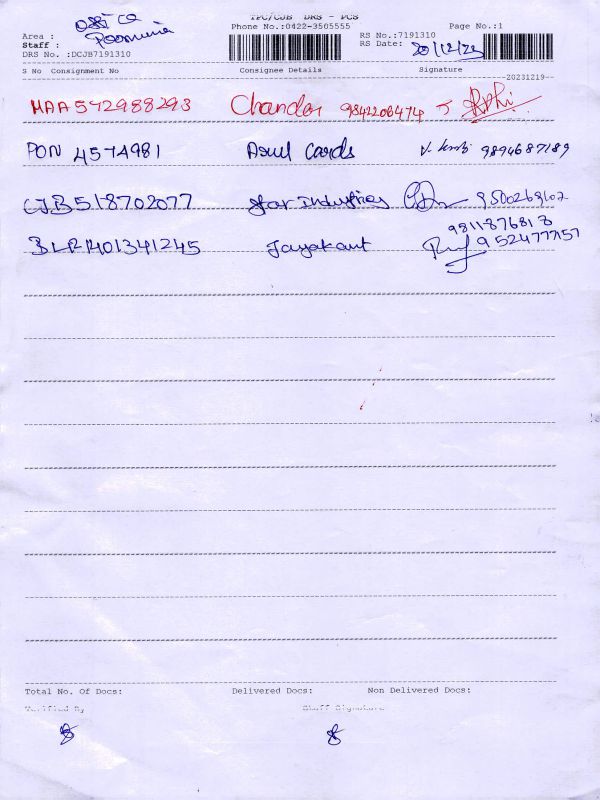 TPC/CJB DRS - PCS
office
Poornima
Phone No.:0422-3505555
Page No.:1
Area :
Staff :
DRS No. :DCJB7191310
RS No.:7191310
RS Date: 20/12/23
S No Consignment No Consignee Details Signature
--20231219--
MAA572988293 Chander 9842206474
PON 4574981 Asul Cards 9894687189
CJB518702077 Star Industries 9500269102
BLR1401341245 Jayakant 9811876818
9524777157
Total No. Of Docs: Delivered Docs: Non Delivered Docs:
Verified By Staff Signature